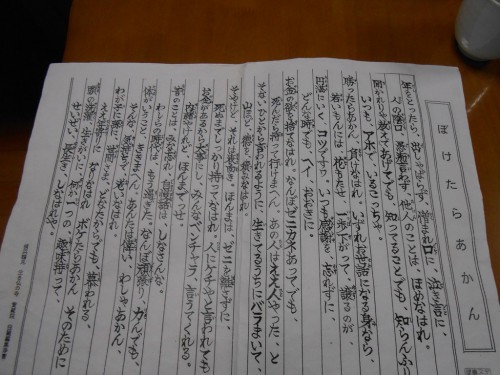 ぼけたらあかん
年をとったら、出しゃばらず、憎まれ口に、泣き言に、
人の陰口、愚痴言わず、他人のことは、ほめなはれ。
聞かれりゃ教えてあげてでも、知ってることでも、知らんふり、
いつも、アホで、いるこっちゃ。
勝ったらあかん、負けなはれ。いずれお世話になる身なら、
若いもんには花もたせ、一歩下がって、譲るのが、
円満にいく、コツですわ。いつも感謝を、忘れずに、
どんな時でも、ヘイ、おおきに。
お金の欲を、捨てなはれ。なんぼゼニカネあってでも、
死んだら持って行けまへん。あの人はええ人やった、と
そないひとから言われるように、生きてるうちにバラまいて、
山ほど徳を、積みなはれ。
そやけど、それは表向き。ほんまは、ゼニを離さずに、
死ぬまでしっかり、持ってなはれ。人にケチやと言われても
お金があるから大事にし、みんなベンチャラ、言うてくれる。
内緒やけれど、ほんまだっせ。
昔のことは、みな忘れ、自慢話は、しなさんな。
わしらの時代は、もう過ぎた。なんぼ頑張り、力んでも、
体がいうこと、ききまへん。あんたは偉い、わしゃあかん、
そんな気持ちで、おりなはれ。
わが子に孫に、世間さま、どなたからでも、慕われる、
ええ年寄りに、なりなはれ。ボケたらあかん、そのために
頭の洗濯、生きがいに、何か一つの、趣味持って、
せいぜい、長生き、しなはれや。